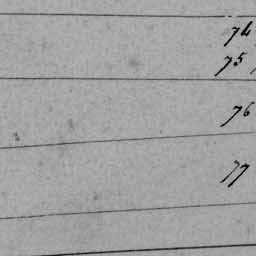 74
75
76
77